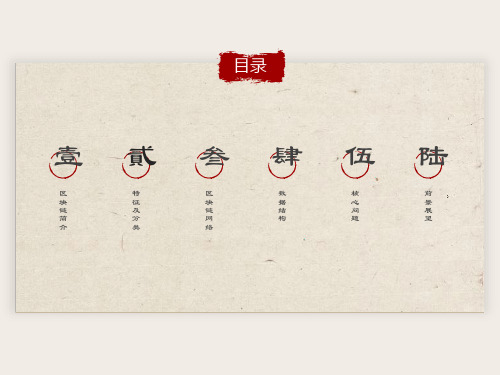 目录
壹
贰
叁
肆
伍
陆
区块链简介
特征及分类
区块链网络
数据结构
核心问题
前景展望